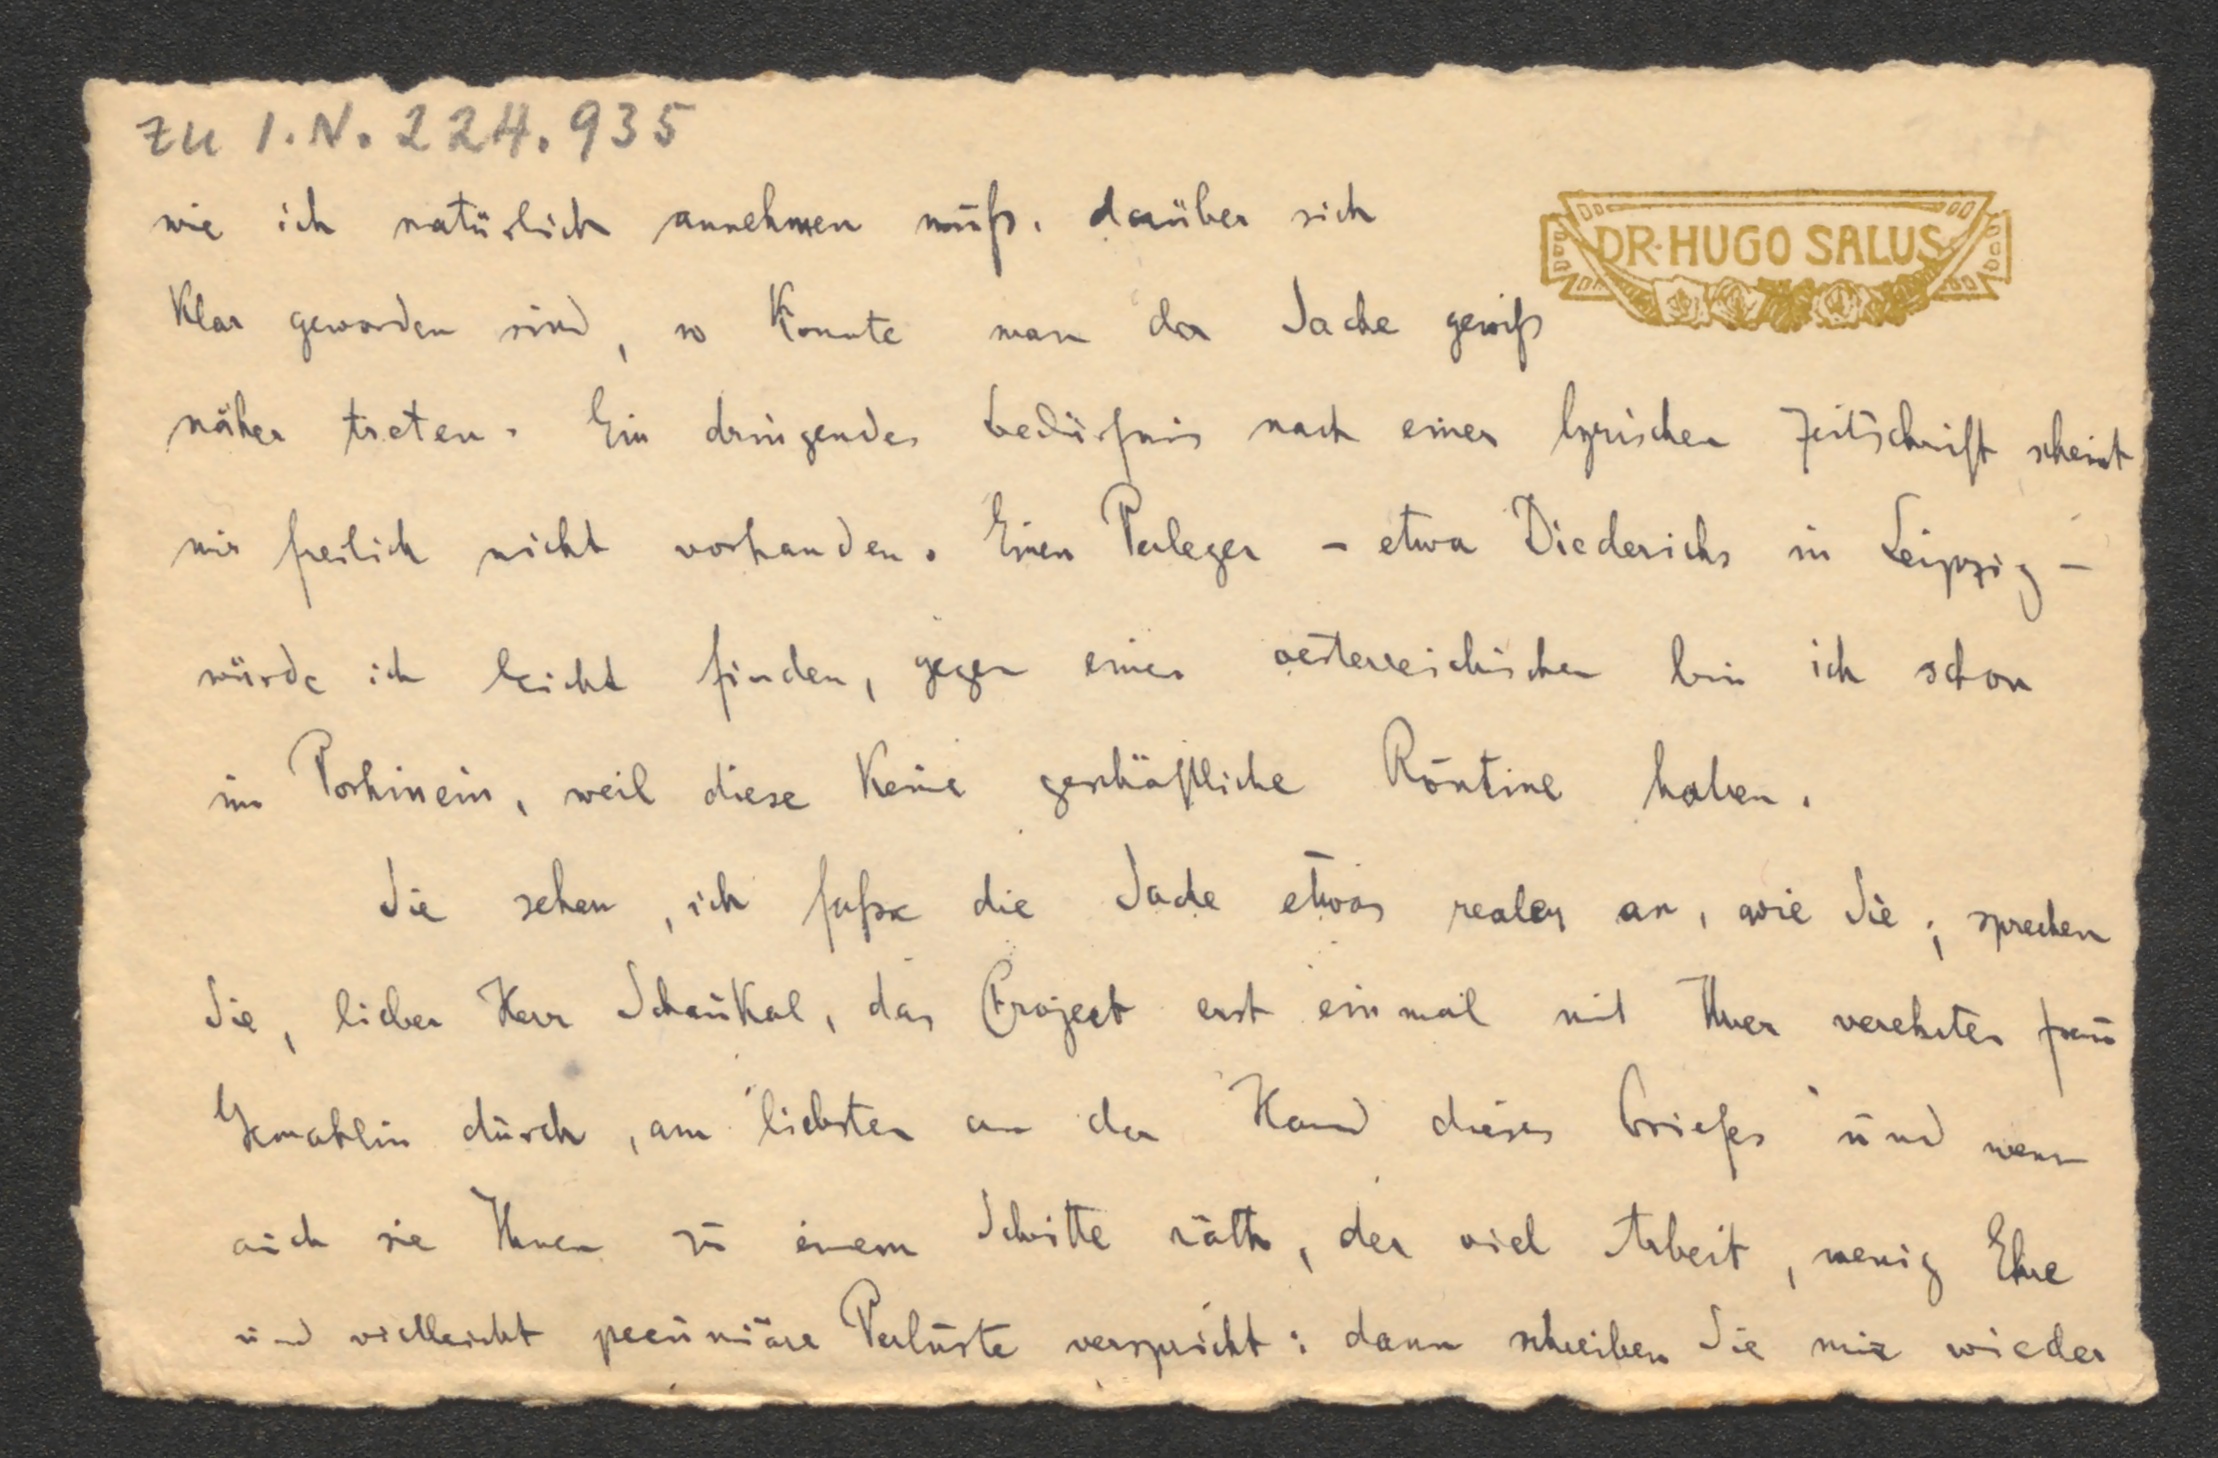 zu I.N. 224.935
DR. HUGO SALUS
wie ich natürlich annehmen muß, darüber sich
klar geworden sind, so könnte man der Sache gewiß
näher treten. Ein dringendes Bedürfnis nach einer lyrischen Zeitschrift scheint
mir freilich nicht vorhanden. Einen Verleger – etwa Diederichs in Leipzig –
würde ich leicht finden, gegen einen oesterreichischen bin ich schon
im Vorhinein, weil diese keine geschäftliche Routine haben.
Sie sehen, ich fasse die Sache etwas realer an, wie Sie; sprechen
Sie, lieber Herr Schaukal, das Project erst einmal mit Ihrer verehrten Frau
Gemahlin durch, am liebsten an der Hand dieses Briefes und wenn
auch sie Ihnen zu einem Schritte räth, der viel Arbeit, wenig Ehre
und vielleicht pecuniäre Verluste verspricht: dann schreiben Sie mir wieder